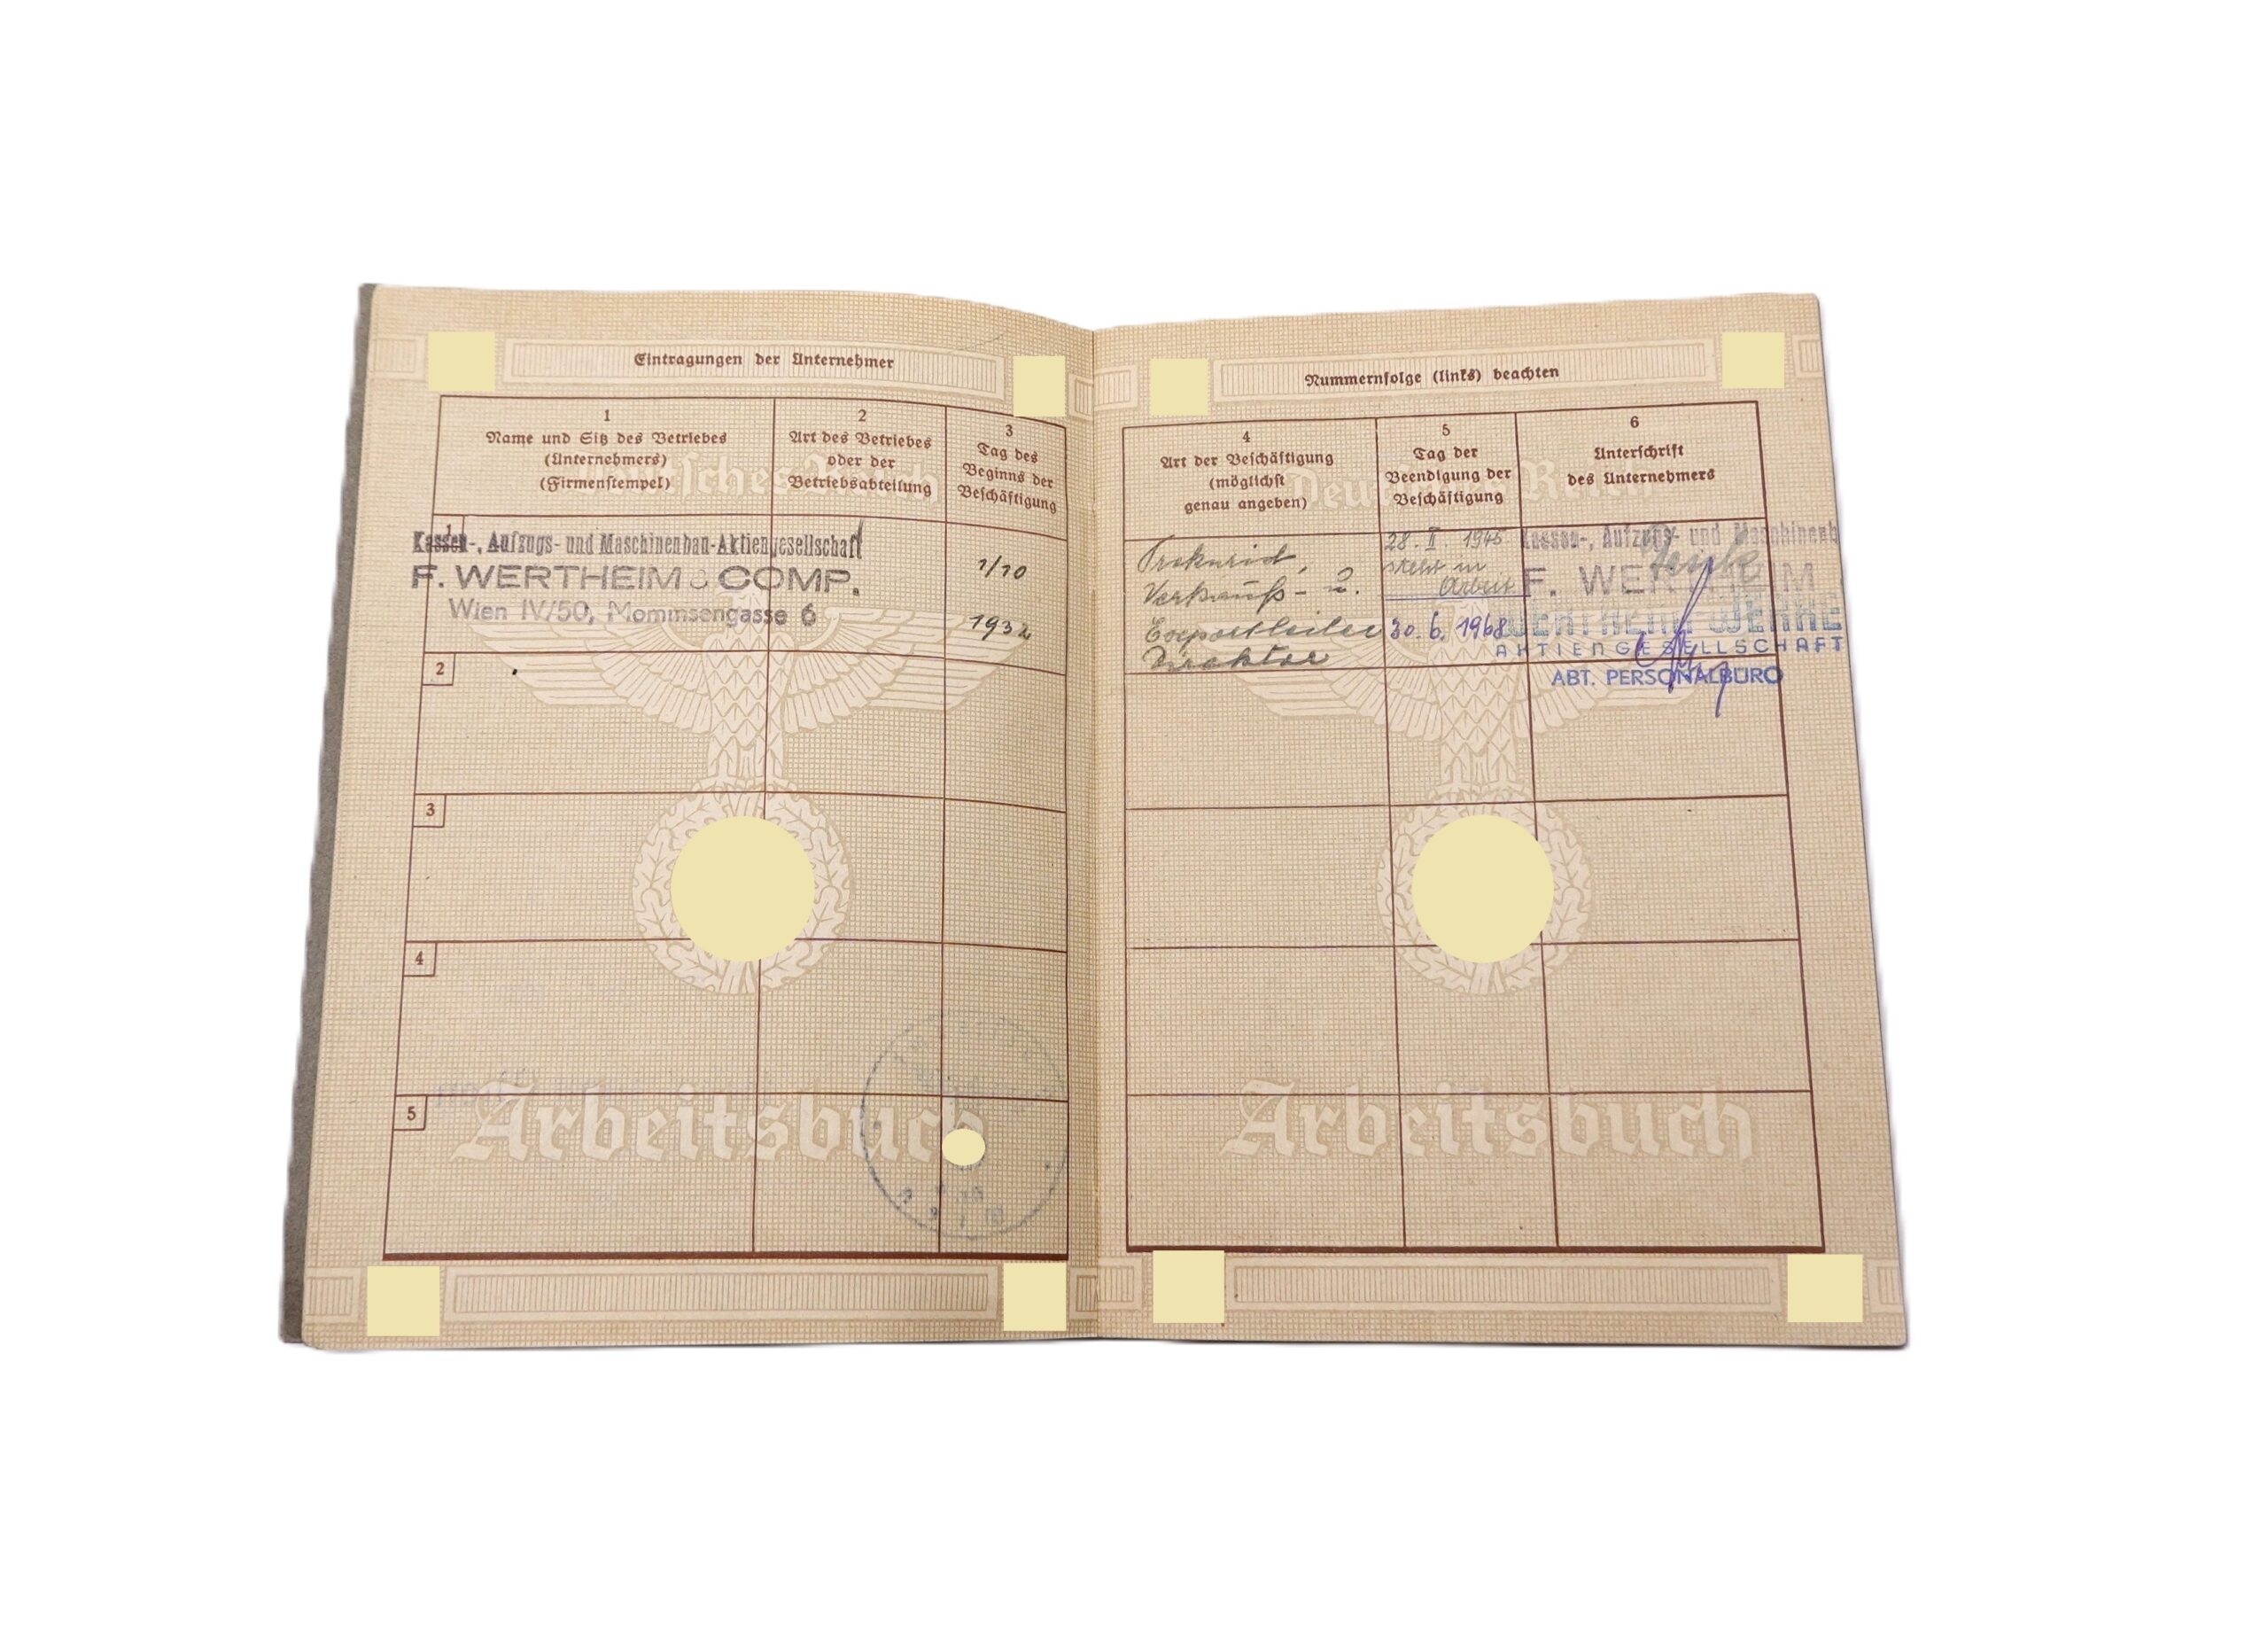 Eintragungen der Unternehmer
1
Name und Sitz des Betriebes
(Unternehmers)
(Firmenstempel)
2
Art des Betriebes
oder der
Betriebsabteilung
3
Tag des
Beginns der
Beschäftigung
1
Kassen-, Aufzugs- und Maschinenbau-Aktiengesellschaft
F. WERTHEIM & COMP.
Wien IV/50, Mommsengasse 6
1/10
1932
2
3
4
5
Deutsches Reich
Arbeitsbuch
Nummernfolge (links) beachten
4
Art der Beschäftigung
(möglichst
genau angeben)
5
Tag der
Beendigung der
Beschäftigung
6
Unterschrift
des Unternehmers
Prokurist,
Verkaufs- u.
Exportleiter
Direktor
28. II. 1945
steht in
Arbeit
30. 6. 1968
Kassen-, Aufzugs- und Maschinenb
F. WERTHEIM
WERTHEIM-WERKE
AKTIENGESELLSCHAFT
ABT. PERSONALBÜRO
Deutsches Reich
Arbeitsbuch